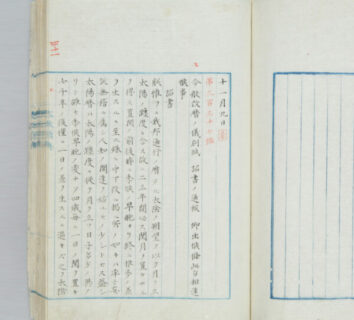 十一月九日
第三百三十七號
今般改暦ノ儀別紙 詔書ノ通被 仰出候條此旨相達
候事
詔書
朕惟フニ我邦通行ノ暦タル太陰ノ朔望ヲ以テ月ヲ立テ
太陽ノ躔度ニ合ス故ニ二三年間必ス閏月ヲ置カサル
ヲ得ス置閏ノ前後時ニ季候ノ早晩アリ終ニ推歩ノ差
ヲ生スルニ至ル殊ニ中下段ニ掲ル所ノ如キハ率子妄
誕無稽ニ属シ人知ノ開達ヲ妨ルモノ少シトセス盖シ
太陽暦ハ太陽ノ躔度ニ従テ月ヲ立ツ日子多少ノ異ア
リト雖モ季候早晩ノ變ナク四歳毎ニ一日ノ閏ヲ置キ
七千年ノ後僅ニ一日ノ差ヲ生スルニ過キス之ヲ太陰